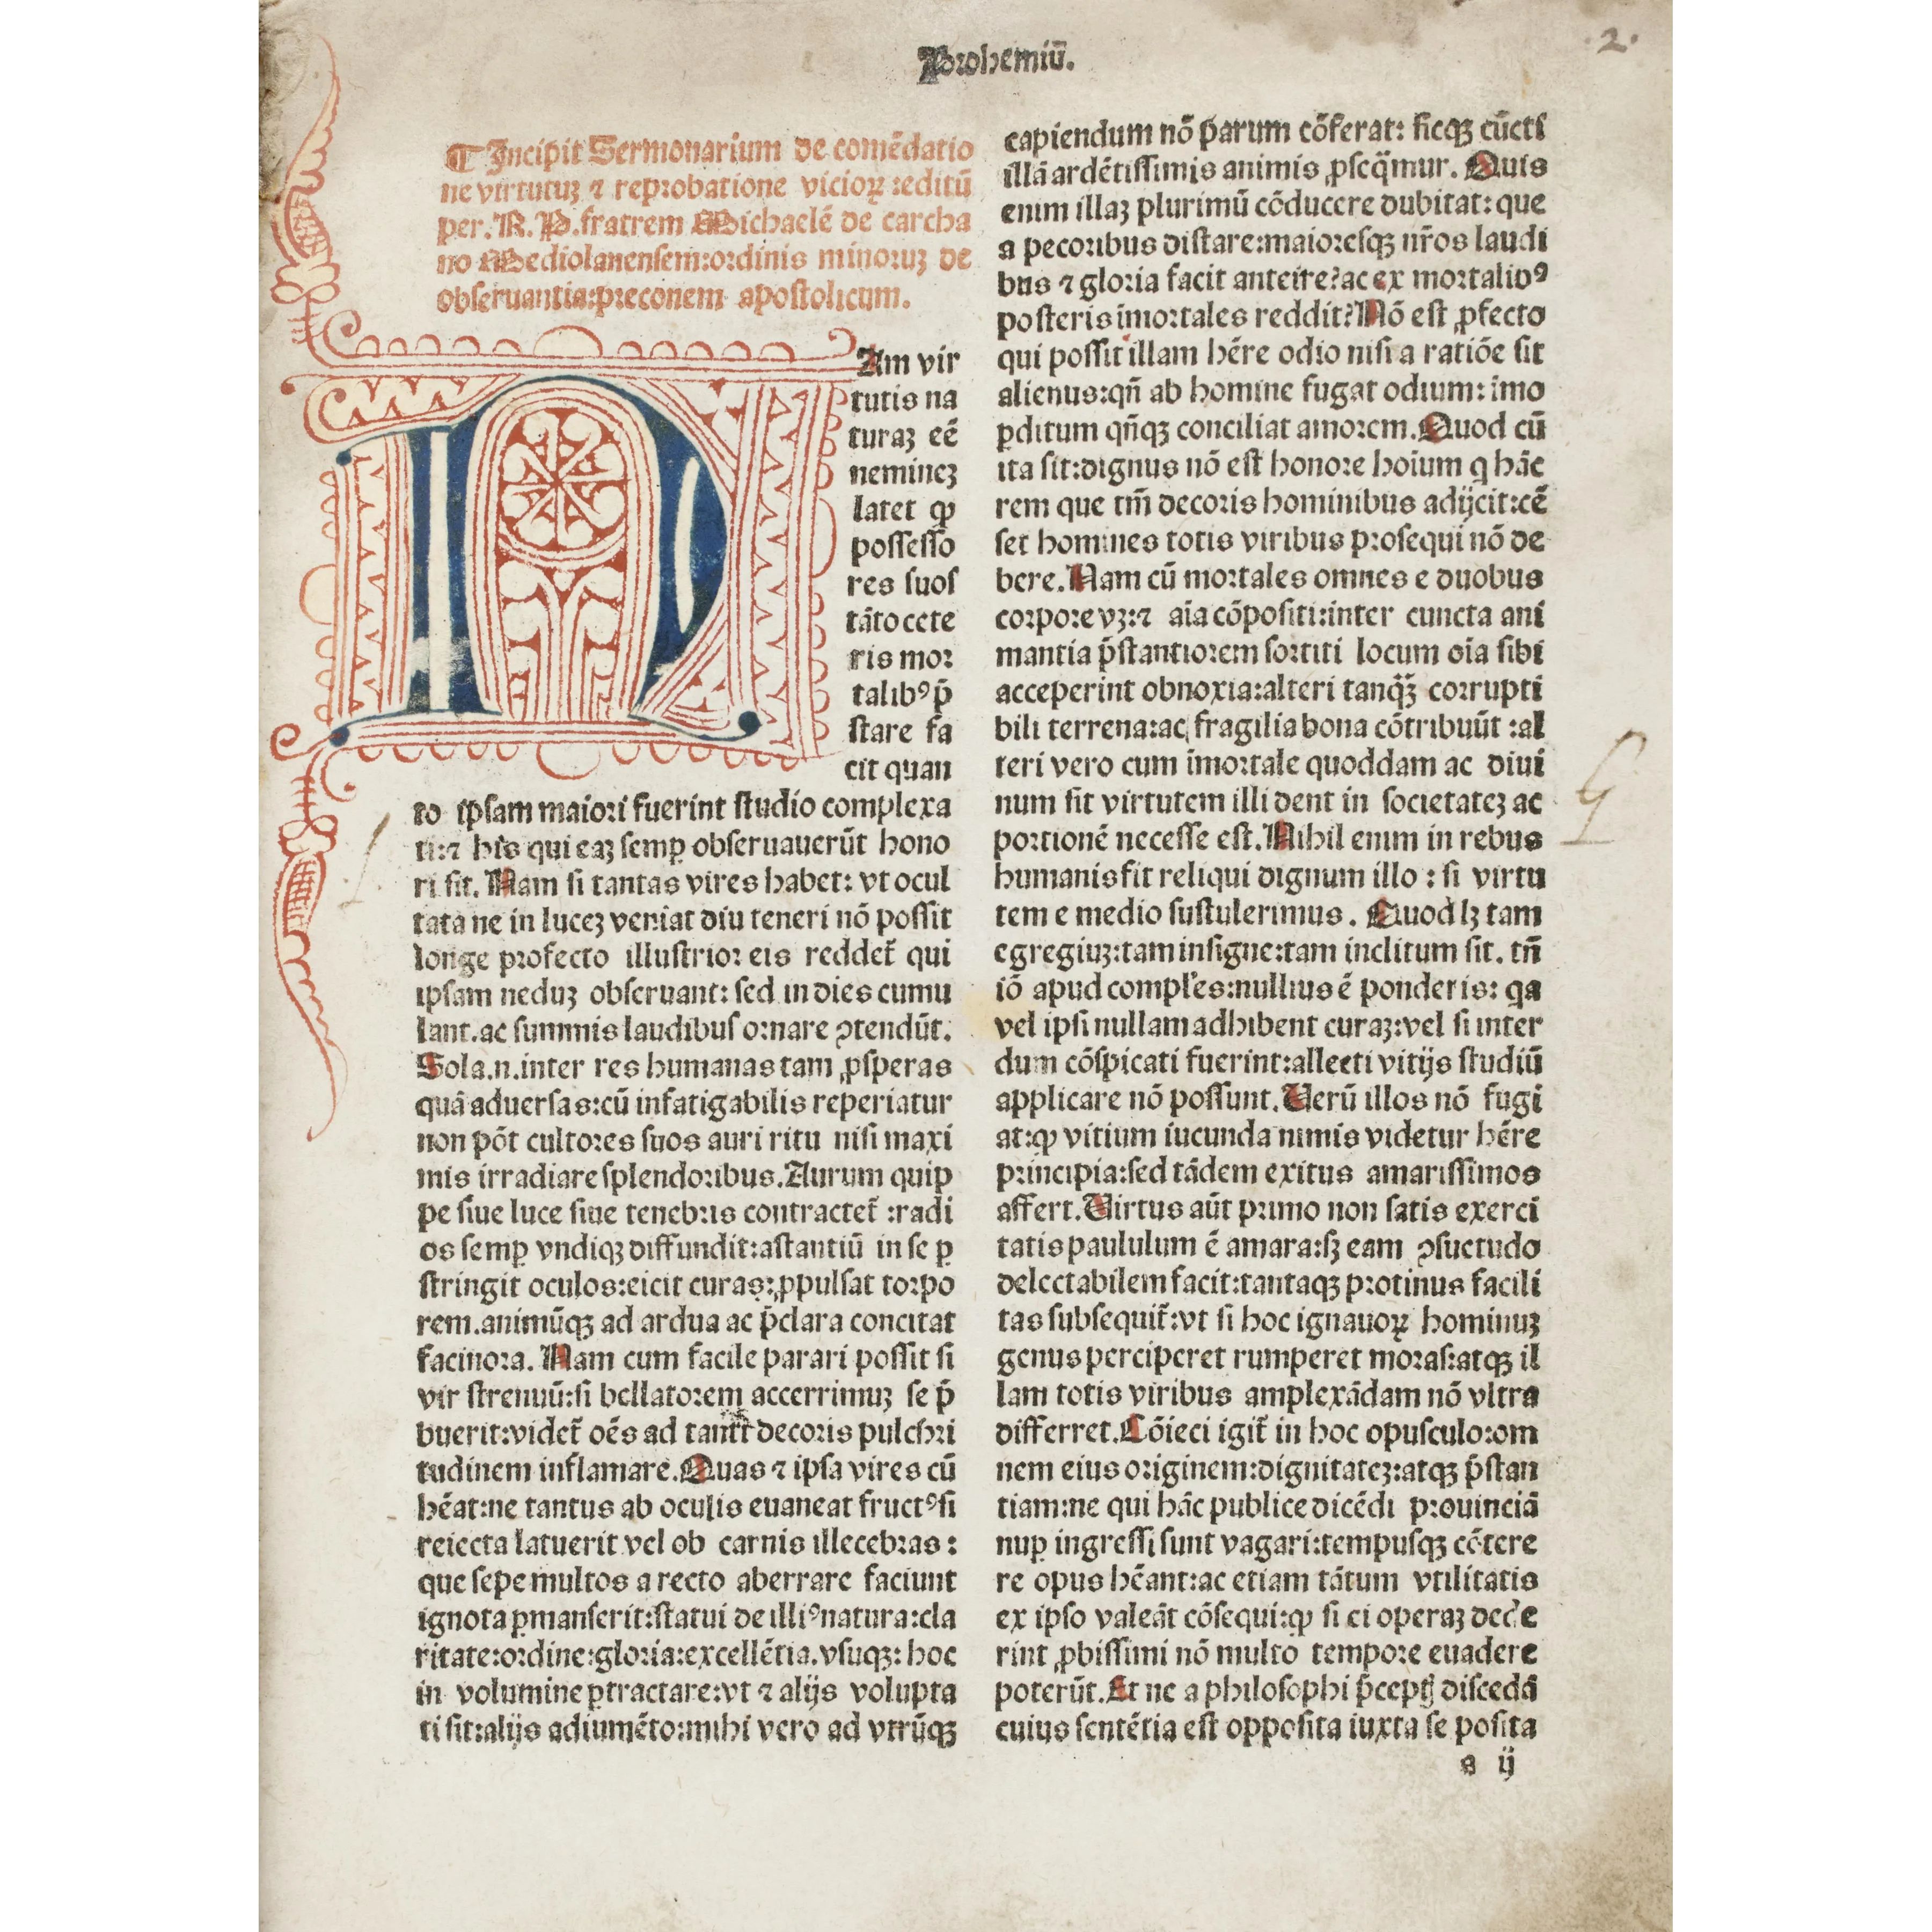 Prohemiū.
.2.
¶ Incipit Sermonarium de comēdatio
ne virtutuꝫ ⁊ reprobatione vicioꝝ :editū
per. R. P. fratrem Michaelē de carcha
no Mediolanensem:ordinis minoruꝫ de
obseruantia:preconem apostolicum.
NAm vir
tutis na
turaꝫ eē
nemineꝫ
latet ꝙ
possesso
res suos
tāto cete
ris mor
talibꝰ p̄
stare fa
cit quan
to ipsam maiori fuerint studio complexa
ti:⁊ his qui eaꝫ semꝑ obseruauerūt hono
ri sit. Nam si tantas vires habet: vt ocul
tata ne in luceꝫ veniat diu teneri nō possit
longe profecto illustrior eis reddet̄ qui
ipsam neduꝫ obseruant: sed in dies cumu
lant.ac summis laudibus ornare ꝯtendūt.
Sola.n.inter res humanas tam ꝓsperas
quā aduersas:cū infatigabilis reperiatur
non pōt cultores suos auri ritu nisi maxi
mis irradiare splendoribus.Aurum quip
pe siue luce siue tenebris contractet̄ :radi
os semꝑ vndiqꝫ diffundit:astantiū in se ꝑ
stringit oculos:eicit curas:ꝓpulsat torpo
rem.animūqꝫ ad ardua ac p̄clara concitat
facinora. Nam cum facile parari possit si
vir strenuū:si bellatorem accerrimuꝫ se p̄
buerit:videt̄ oēs ad tanti decoris pulchri
tudinem inflamare.Quas ⁊ ipsa vires cū
hēat:ne tantus ab oculis euaneat fructꝰ si
reiecta latuerit vel ob carnis illecebras :
que sepe multos a recto aberrare faciunt
ignota ꝑmanserit:statui de illiꝰ natura:cla
ritate:ordine:gloria:excellētia.vsuqꝫ: hoc
in volumine ꝑtractare:vt ⁊ alijs volupta
ti sit:alijs adiumēto:mihi vero ad vtrūqꝫ
capiendum nō parum cōferat: sicqꝫ cūcti
illā ardētissimis animis ꝓseq̄mur. Quis
enim illaꝫ plurimū cōducere dubitat: que
a pecoribus distare:maioresqꝫ nr̄os laudi
bus ⁊ gloria facit anteire?ac ex mortalibꝰ
posteris īmortales reddit?Nō est ꝓfecto
qui possit illam hēre odio nisi a ratiōe sit
alienus:qn̄ ab homine fugat odium: imo
ꝑditum qn̄qꝫ conciliat amorem.Quod cū
ita sit:dignus nō est honore hoīum q hāc
rem que tm̄ decoris hominibus adijcit:cē
set homines totis viribus prosequi nō de
bere.Nam cū mortales omnes e duobus
corpore vꝫ:⁊ aīa cōpositi:inter cuncta ani
mantia p̄stantiorem sortiti locum oīa sibi
acceperint obnoxia:alteri tanq̄ꝫ corrupti
bili terrena:ac fragilia bona cōtribuūt :al
teri vero cum īmortale quoddam ac diui
num sit virtutem illi dent in societateꝫ ac
portionē necesse est.Nihil enim in rebus
humanis fit reliqui dignum illo : si virtu
tem e medio sustulerimus. Quod lꝫ tam
egregiuꝫ:tam insigne:tam inclitum sit. tn̄
iō apud compl'es:nullius ē ponderis: qa
vel ipsi nullam adhibent curaꝫ:vel si inter
dum cōspicati fuerint:allecti vitijs studiū
applicare nō possunt.Uerū illos nō fugi
at:ꝙ vitium iucunda nimis videtur hēre
principia:sed tādem exitus amarissimos
affert.Uirtus aūt primo non satis exerci
tatis paululum ē amara:sꝫ eam ꝯsuetudo
delectabilem facit:tantaqꝫ protinus facili
tas subsequit̄:vt si hoc ignauoꝝ hominuꝫ
genus perciperet rumperet moras:atqꝫ il
lam totis viribus amplexādam nō vltra
differret.Cōieci igit̄ in hoc opusculo:om
nem eius originem:dignitateꝫ:atqꝫ p̄stan
tiam:ne qui hāc publice dicēdi prouinciā
nuꝑ ingressi sunt vagari:tempusqꝫ cōtere
re opus hēant:ac etiam tātum vtilitatis
ex ipso valeāt cōsequi:ꝙ si ei operaꝫ dede
rint ꝓbissimi nō multo tempore euadere
poterūt.Et ne a philosophi p̄ceptꝭ discedā
cuius sentētia est opposita iuxta se posita
a ij